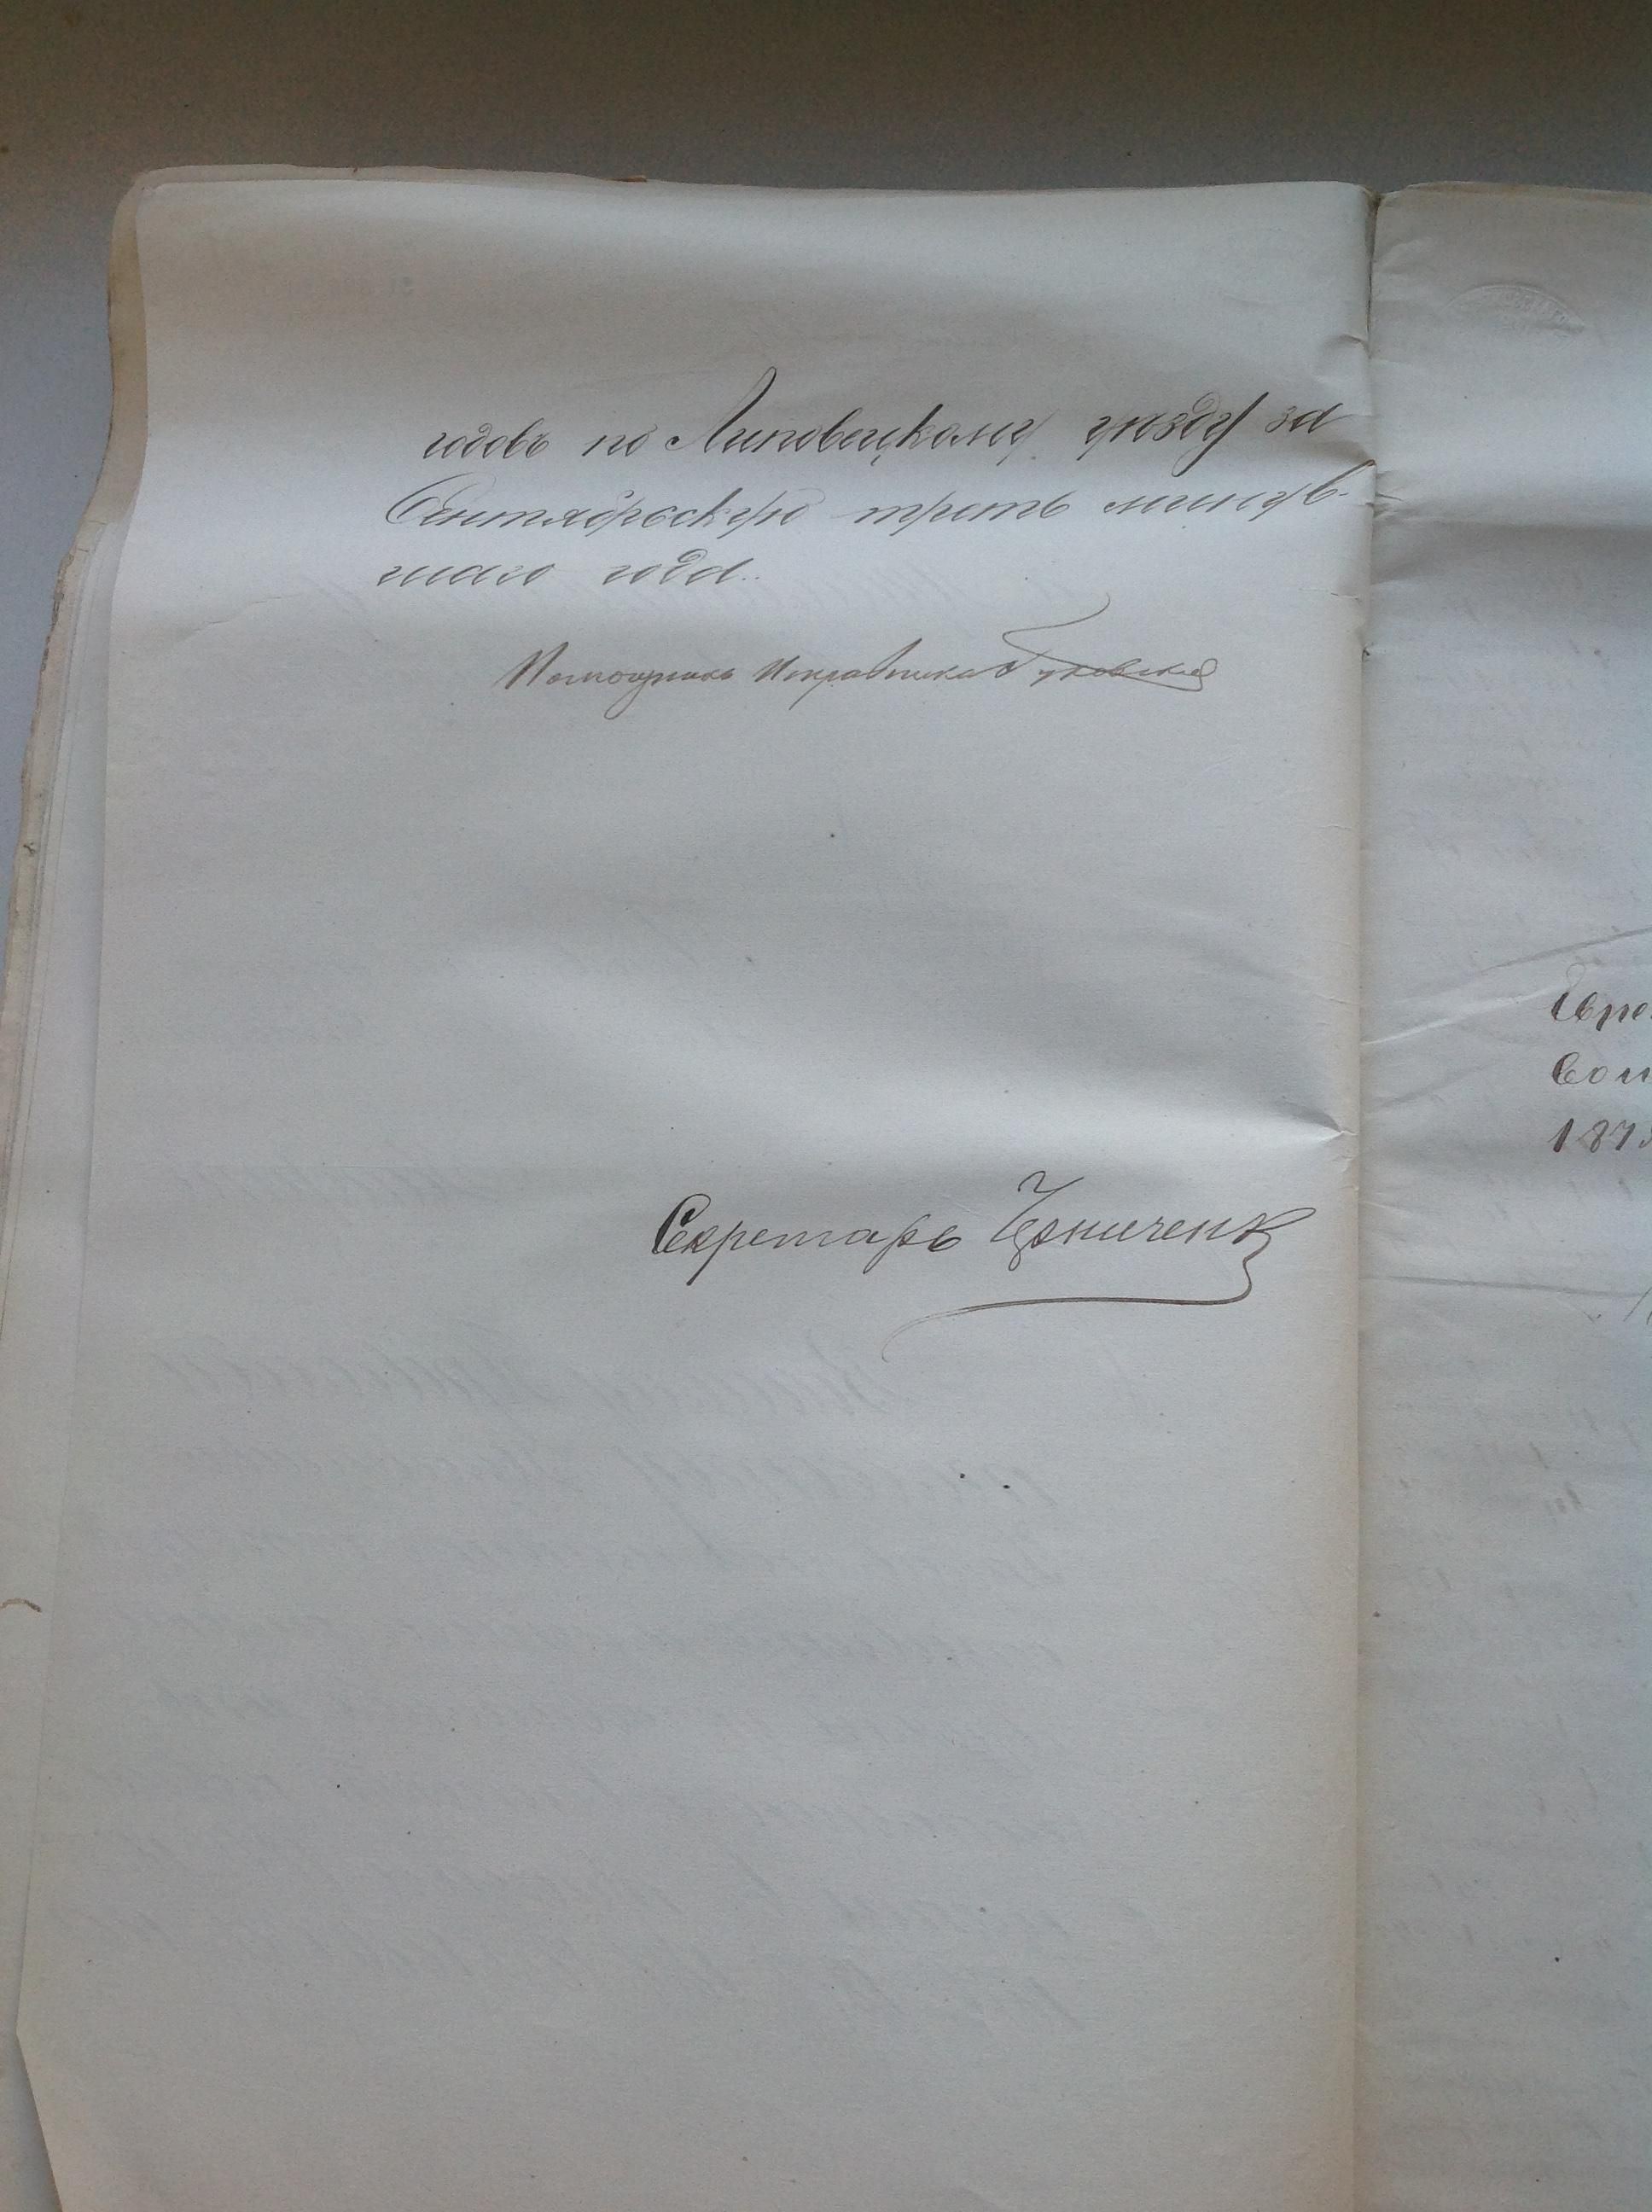 годовъ по Липовецкому уѣзду за
Сентябрьскую треть минув-
шаго года.
Помощникъ Исправника
Секретарь Черниченк
Евре
Сои
187